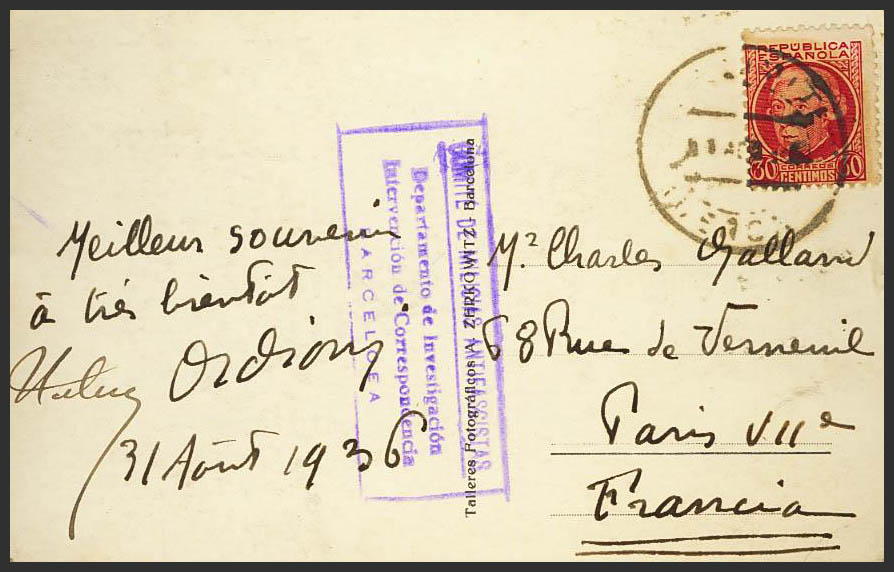 REPÚBLICA
ESPAÑOLA
30 CORREOS 30
CENTIMOS
COMITÉ DE MILICIAS ANTIFASCISTAS
Departamento de Investigación
Intervención de Correspondencia
BARCELONA
Talleres Fotográficos A. ZERKOWITZ - Barcelona
Meilleur souvenir
à très bientôt
Ordioni
31 Août 1936
Mr Charles Galland
68 Rue de Verneuil
Paris VIIe
Francia